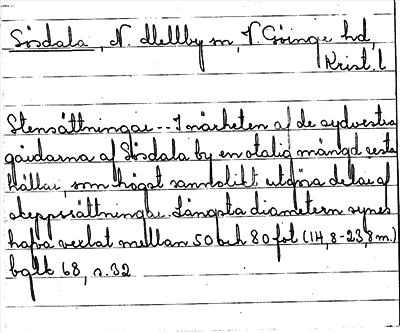 Sösdala, N. Mellby sn, V. Göinge hd,
Krist. l
Stensättningar. - I närheten af de sydvestra
gårdarna af Sösdala by en otalig mängd resta
hällar, som högst sannolikt utgöra delar af
skeppssättningar. Längsta diametern synes
hafva vexlat mellan 50 och 80 fot (14,8-23,8 m.)
bglk 68, s. 32